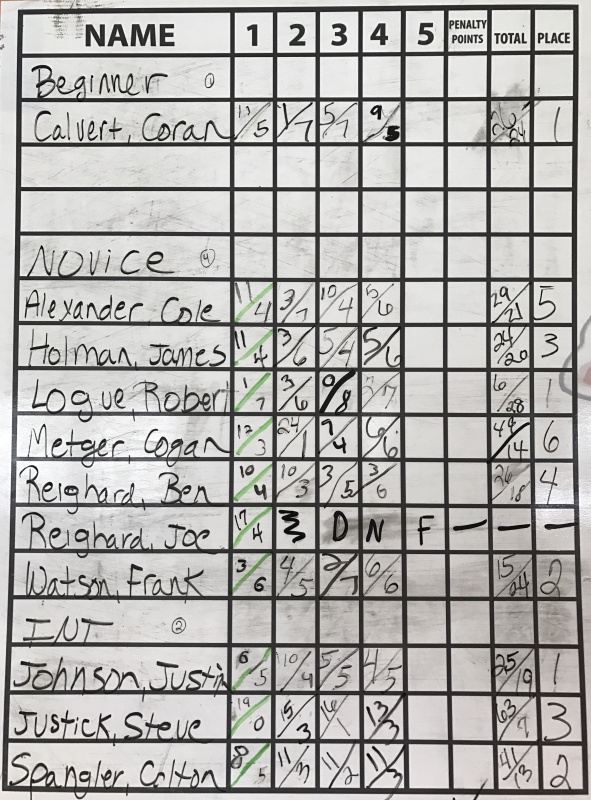 NAME 1 2 3 4 5 PENALTY POINTS TOTAL PLACE
Beginner 1
Calvert, Coran 11/5 1/7 5/7 9/5 26/24 1
NOVICE 4
Alexander, Cole 11/4 3/7 10/4 5/6 29/21 5
Holman, James 11/4 3/6 5/4 5/6 24/20 3
Logue, Robert 1/7 3/6 0/8 2/7 6/28 1
Metger, Cogan 12/3 24/1 7/4 6/6 49/14 6
Reighard, Ben 10/4 10/3 3/5 3/6 26/18 4
Reighard, Joe 17/4 D N F — — —
Watson, Frank 3/6 4/5 2/7 6/6 15/24 2
INT 2
Johnson, Justin 6/5 10/4 5/5 4/5 25/19 1
Justick, Steve 19/0 15/3 16/1 13/3 63/7 3
Spangler, Colton 8/5 11/3 11/2 11/3 41/13 2